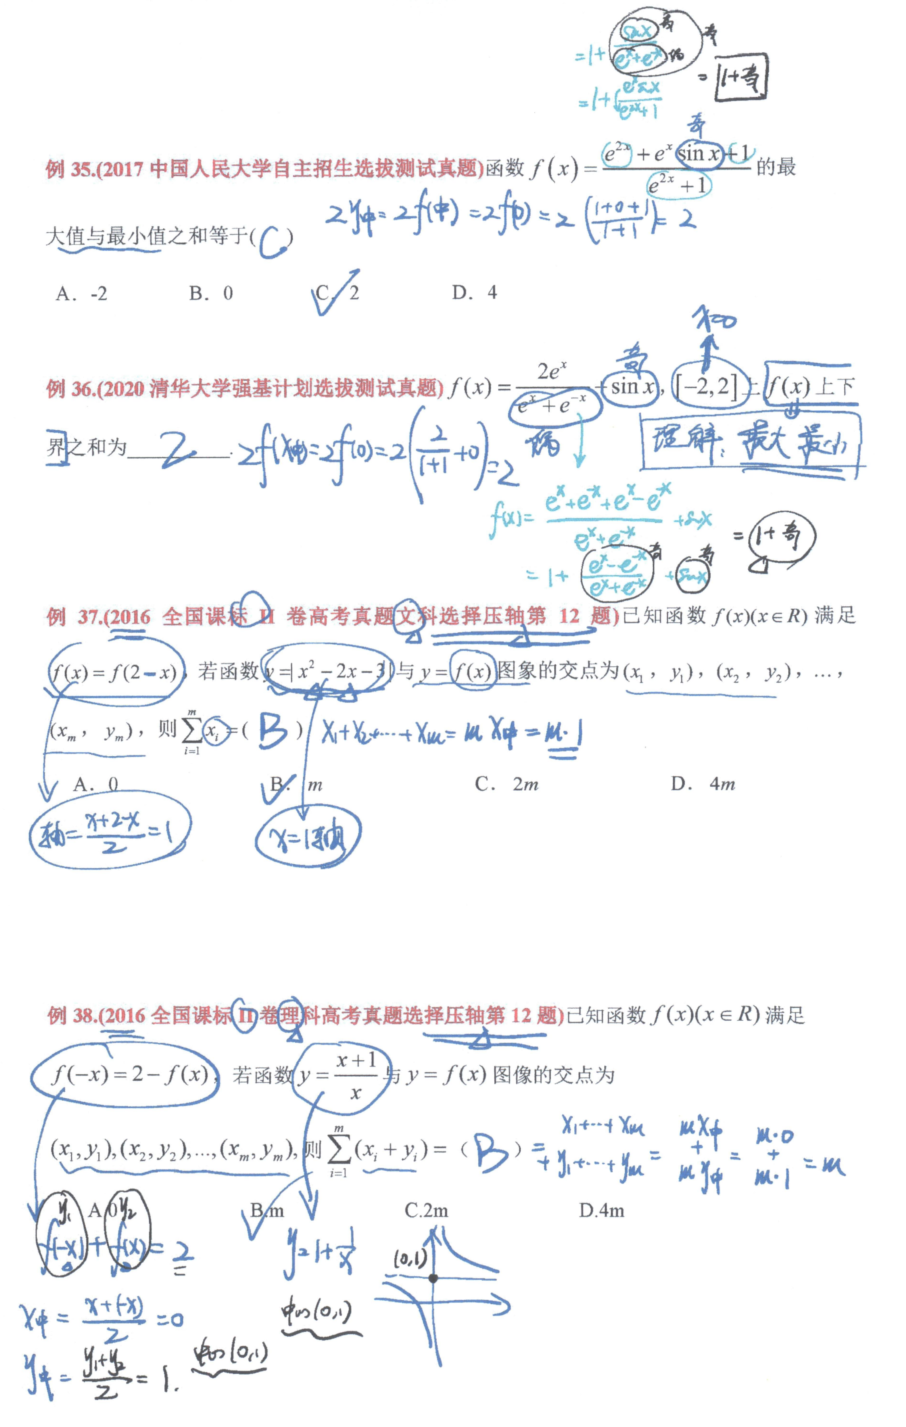 = 1 + sinx / (eˣ+e⁻ˣ) 奇 偶 奇
= 1+奇
= 1 + eˣsinx / (e²ˣ+1)
奇
例 35.(2017 中国人民大学自主招生选拔测试真题)函数 f(x) = (e²ˣ + eˣ sin x + 1) / (e²ˣ + 1) 的最
2y中 = 2f(中) = 2f(0) = 2((1+0+1)/(1+1)) = 2
大值与最小值之和等于( C )
A. -2 B. 0 C. 2 D. 4
x=0
奇
例 36.(2020 清华大学强基计划选拔测试真题) f(x) = 2eˣ / (eˣ + e⁻ˣ) + sin x, [−2,2] 上 f(x) 上下
界之和为 2 . 2f(x中)=2f(0)=2(2/(1+1)+0)=2 偶 理解: 最大 最小
f(x)= (eˣ+e⁻ˣ+eˣ−e⁻ˣ) / (eˣ+e⁻ˣ) + sinx = 1+奇
= 1 + (eˣ−e⁻ˣ) / (eˣ+e⁻ˣ) 奇 + sinx 奇
例 37.(2016 全国课标 II 卷高考真题文科选择压轴第 12 题)已知函数 f(x)(x∈R) 满足
f(x) = f(2−x), 若函数 y=| x² − 2x − 3| 与 y = f(x) 图象的交点为 (x₁, y₁), (x₂, y₂), …,
(xₘ, yₘ), 则 ∑ᵢ₌₁ᵐ xᵢ = ( B ) x₁+x₂+⋯+xₘ = m x中 = m·1
A. 0 B. m C. 2m D. 4m
轴= (x+2-x)/2 =1 x=1轴
例 38.(2016 全国课标 II 卷理科高考真题选择压轴第 12 题)已知函数 f(x)(x∈R) 满足
f(−x) = 2 − f(x), 若函数 y = (x+1)/x 与 y = f(x) 图像的交点为
(x₁,y₁),(x₂,y₂),…,(xₘ,yₘ), 则 ∑ᵢ₌₁ᵐ (xᵢ + yᵢ) = ( B ) = x₁+⋯+xₘ + y₁+⋯+yₘ = m x中 + m y中 = m·0 + m·1 = m
A.0 B.m C.2m D.4m
y₁ y₂
f(−x) + f(x) = 2
y=1+1/x
(0,1)
x中 = (x+(−x))/2 =0
中心(0,1)
y中 = (y₁+y₂)/2 = 1.
中心(0,1)